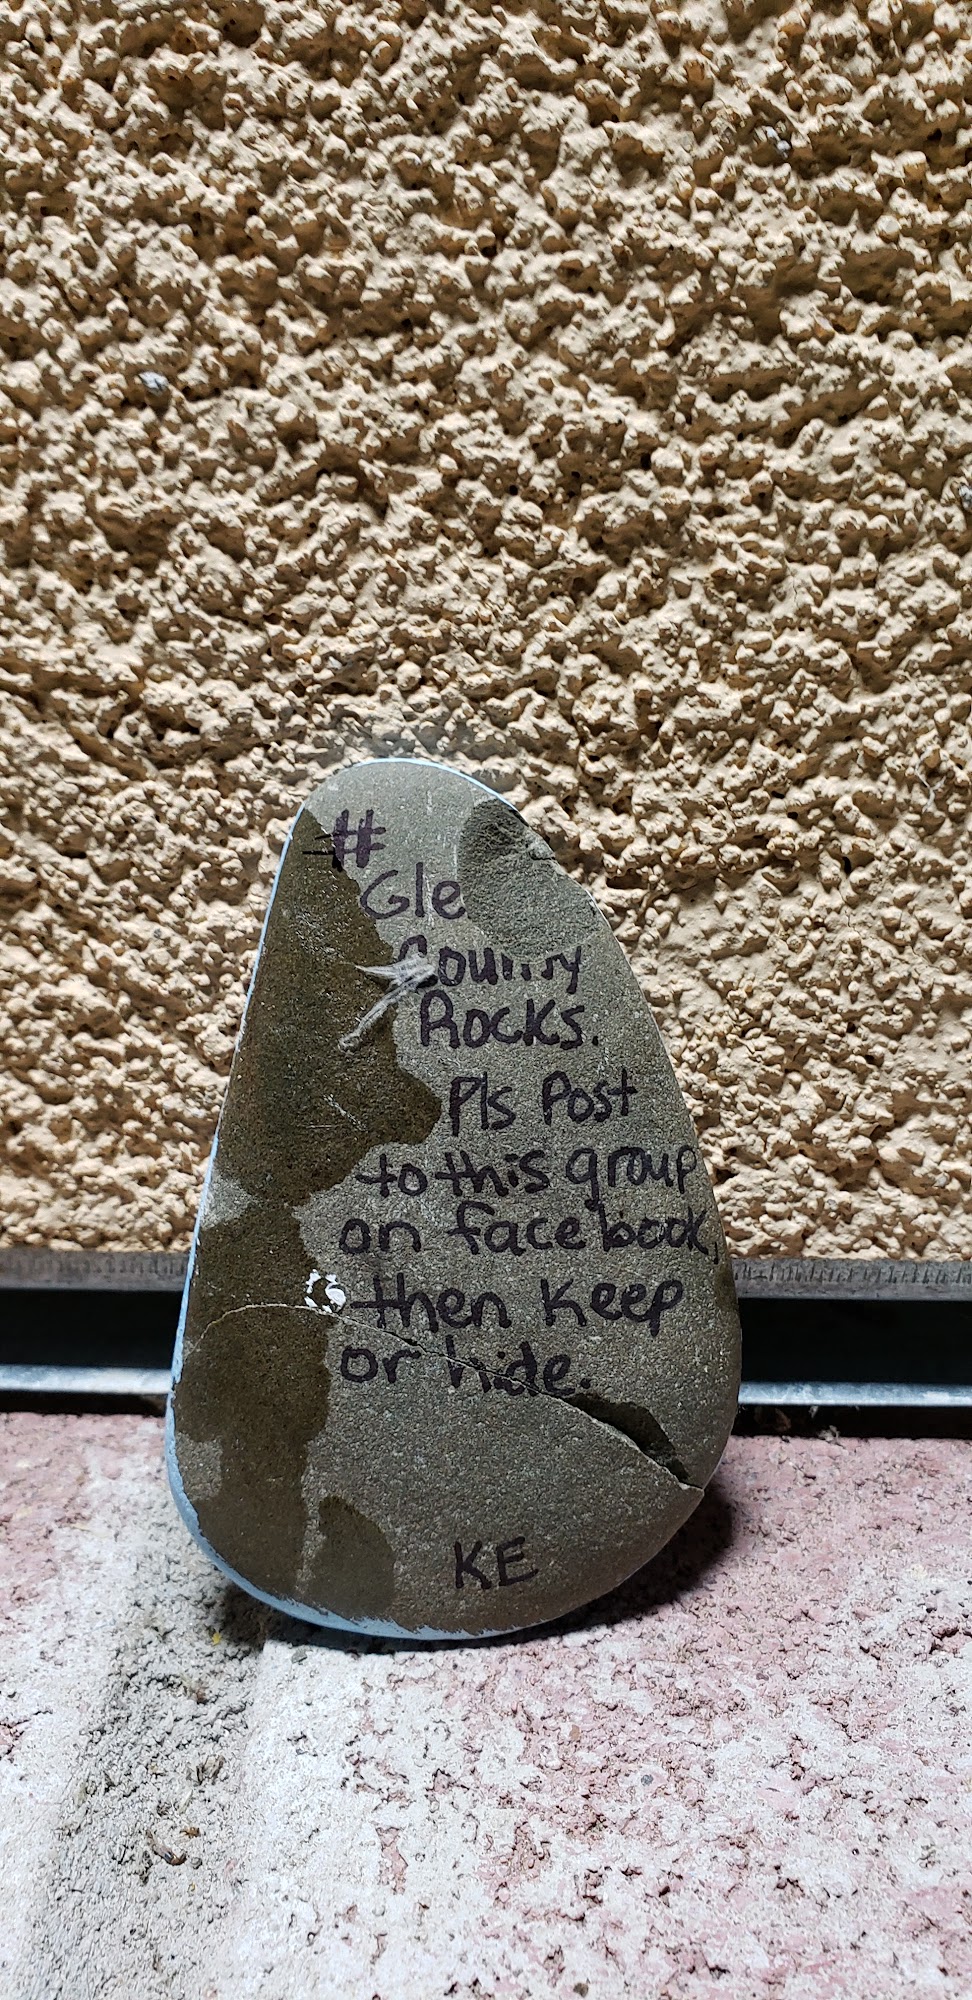 #
Gle
County
Rocks.
Pls Post
to this group
on facebook,
then keep
or hide.
KE